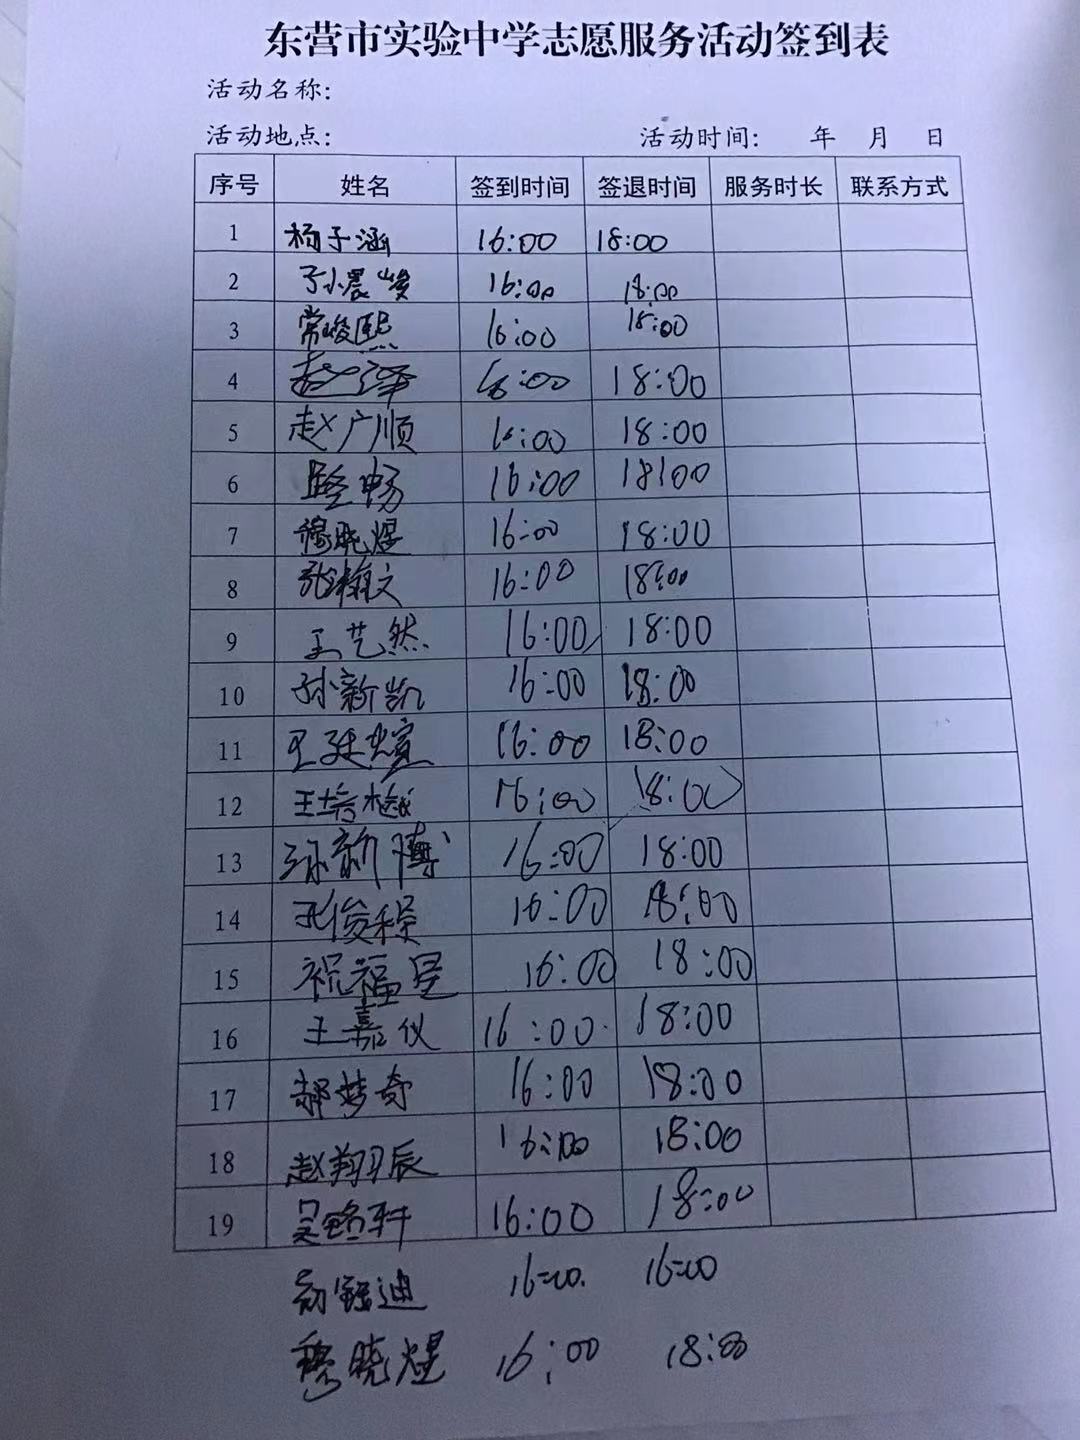 东营市实验中学志愿服务活动签到表
活动名称:
活动地点: 活动时间: 年 月 日
序号 姓名 签到时间 签退时间 服务时长 联系方式
1 杨子涵 16:00 18:00
2 孙晨峻 16:00 18:00
3 常峻熙 16:00 18:00
4 赵泽 16:00 18:00
5 赵广顺 16:00 18:00
6 畅 16:00 18:00
7 穆晓煜 16:00 18:00
8 张文 16:00 18:00
9 王艺然 16:00 18:00
10 孙新凯 16:00 18:00
11 王廷煊 16:00 18:00
12 王培越 16:00 18:00
13 新博 16:00 18:00
14 俊程 16:00 18:00
15 祝福星 16:00 18:00
16 王嘉仪 16:00 18:00
17 郝梦奇 16:00 18:00
18 赵翔辰 16:00 18:00
19 吴轩 16:00 18:00
迪 16:00 16:00
穆晓煜 16:00 18:00